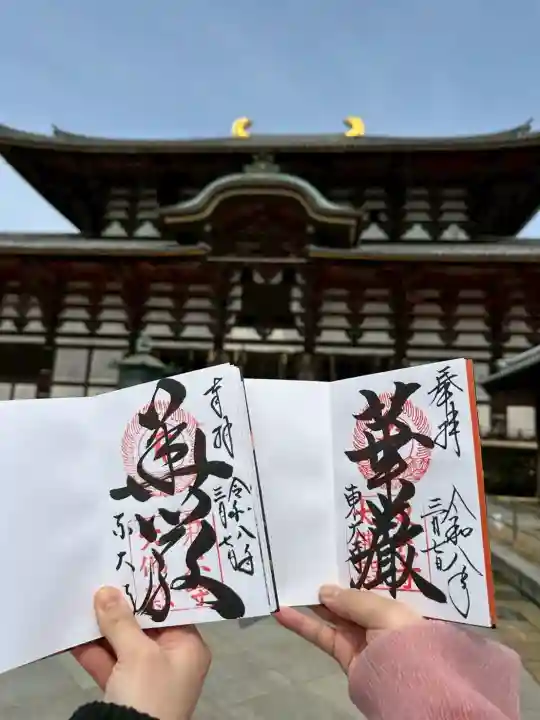 奉拝
令和八年
三月七日
華嚴
東大寺
奉拝
令和八年
三月七日
華厳
東大寺